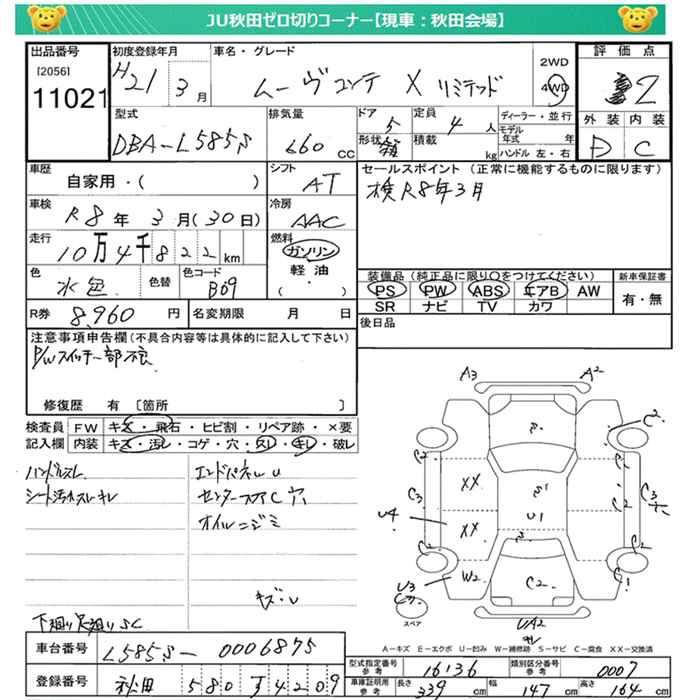 JU秋田ゼロ切りコーナー【現車：秋田会場】
出品番号
[2056]
11021
初度登録年月
H21 3月
車名・グレード
ムーヴコンテ X リミテッド
2WD
4WD
評価点
2
外装 内装
D C
型式
DBA-L585S
排気量
660 CC
ドア 5
形状
定員 4 人
積載 kg
ディーラー・並行
モデル年式 年
ハンドル 左・右
車歴
自家用・( )
シフト
AT
セールスポイント（正常に機能するものに限ります）
検R8年3月
車検
R8年 3月(30日)
冷房
AAC
走行
10万4千822km
燃料
ガソリン
軽油
( )
色
水色
色替
色コード
B69
装備品（純正品に限り〇をつけてください）
PS PW ABS エアB AW
SR ナビ TV カワ
新車保証書
有・無
R券 8,960 円
名変期限 月 日
後日品
注意事項申告欄（不具合内容等は具体的に記入して下さい）
P/Wスイッチ一部不良
修復歴 有 [箇所 ]
検査員記入欄
FW キズ・飛石・ヒビ割・リペア跡・×要
内装 キズ・汚レ・コゲ・穴・スレ・キレ・破レ
ハンドルスレ
シート汚れスレキレ
エンドパネルU
センターフロアC穴
オイルニジミ
キズ・U
下廻り足廻りSC
A3 A2
C2
C3
U4
XX
XX
U1
W2
C2
U3
C1
UA2
スペア
A－キズ E－エクボ U－凹み W－補修跡 S－サビ C－腐食 XX－交換済
車台番号
L585S-0006875
登録番号
秋田 580 ｽ 4209
型式指定番号 参考
16136
類別区分番号 参考
0007
車庫証明用 参考
長さ 339 cm
幅 147 cm
高さ 164 cm